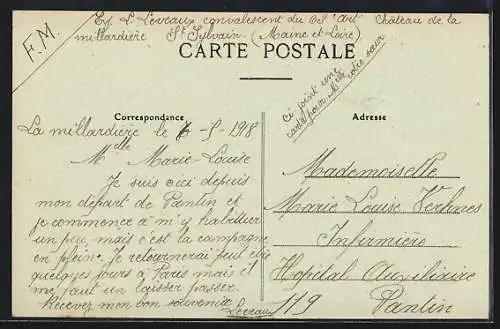 F.M.
Ex. L. Leveaux convalescent du 68e art Château de la
millardière St Sylvain (Maine et Loire)
CARTE POSTALE
ci joint une
carte pour Melle votre sœur
Correspondance
Adresse
La millardière le 6-5-1918
Melle Marie-Louise
Je suis ici depuis
mon départ de Pantin et
je commence à m'y habituer
un peu, mais c'est la campagne
en plein. Je retournerai peut être
quelques jours à Paris mais il
me faut un laisser passer.
Recevez mon bon souvenir
Leveaux
Mademoiselle
Marie Louise Verhnes
Infirmière
Hopital Auxiliaire
119 Pantin